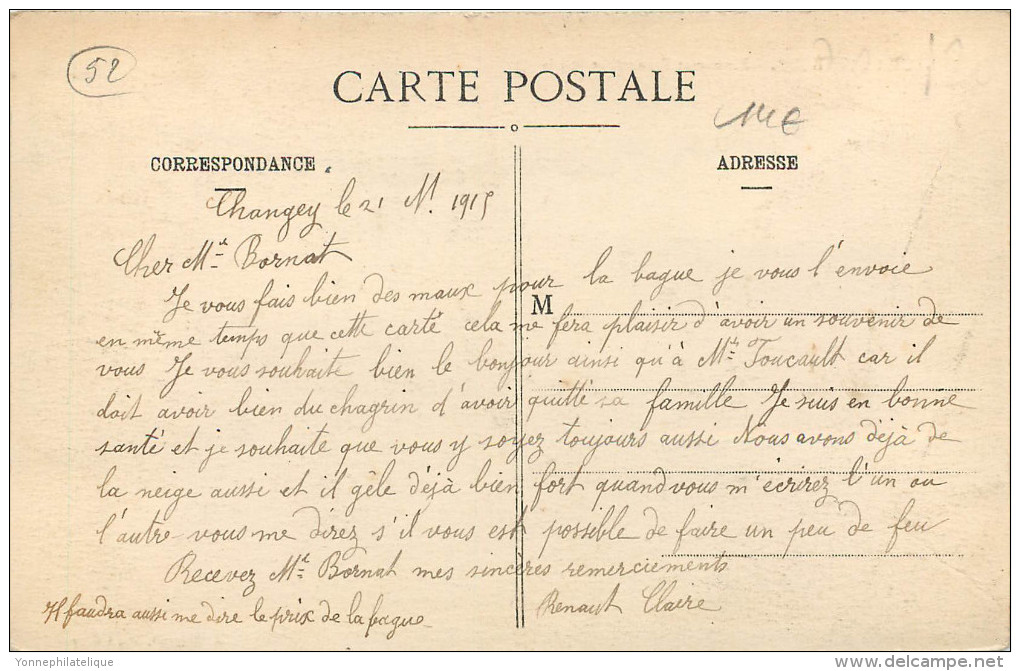 52
CARTE POSTALE
14€
CORRESPONDANCE
ADRESSE
Changey le 21 N. 1915
Cher Mr Bornat
Je vous fais bien des maux pour la bague je vous l'envoie
M
en même temps que cette carte cela me fera plaisir d'avoir un souvenir de
vous Je vous souhaite bien le bonjour ainsi qu'à Mr Foucault car il
doit avoir bien du chagrin d'avoir quitté sa famille Je suis en bonne
santé et je souhaite que vous y soyez toujours aussi Nous avons déjà de
la neige aussi et il gèle déjà bien fort quand vous m'écrirez l'un ou
l'autre vous me direz s'il vous est possible de faire un peu de feu
Recevez Mr Bornat mes sincères remerciements
Renaut Claire
Il faudra aussi me dire le prix de la bague
Yonnephilatelique
delcampe.net